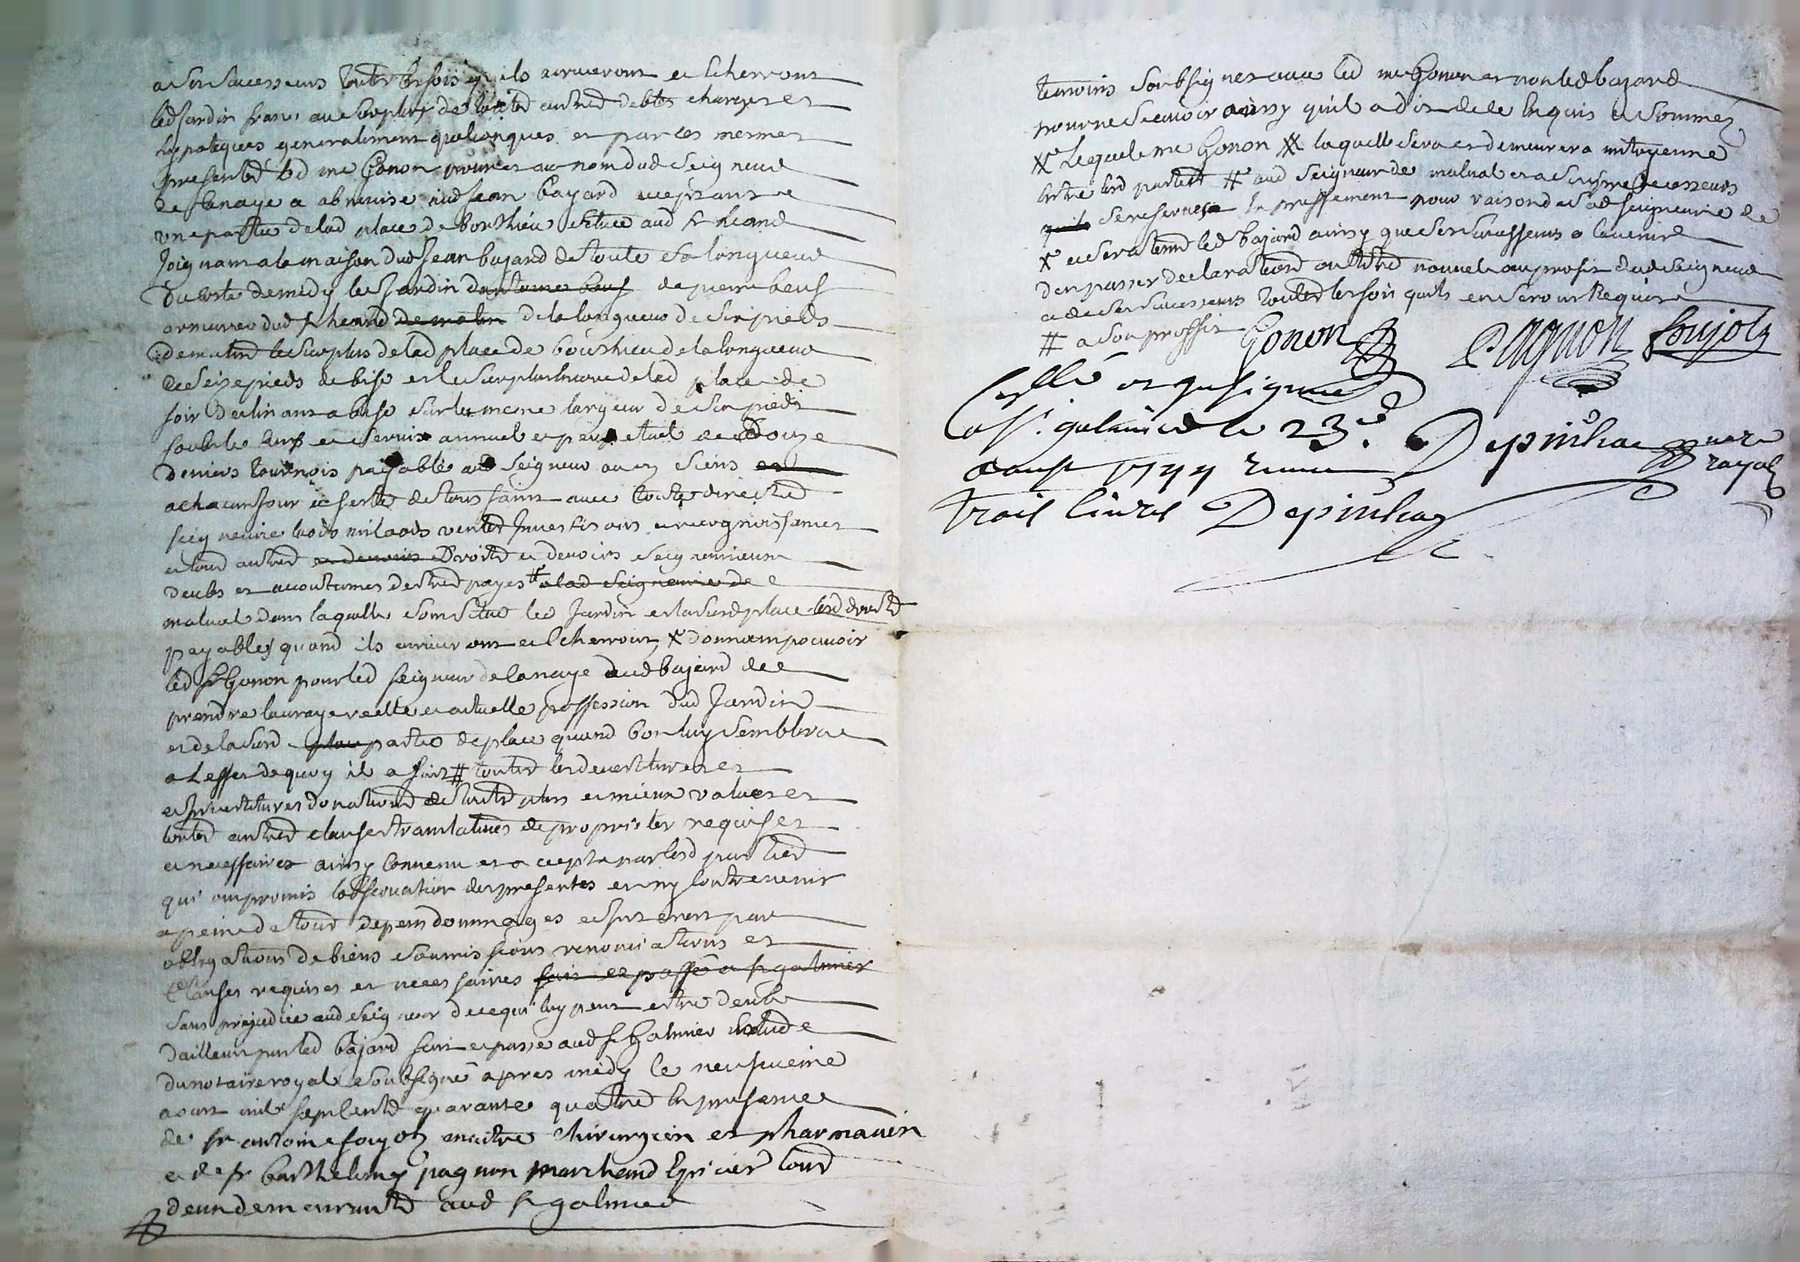 a ses sucesseurs toutes les fois qu'ils arriveront et echerront
led jardin franc au surplus de toutes autres debtes charges et
ypoteques generalment quelconques et par les mesmes
presentes led me Gonon au nom dud seigneur
de lanaye a abenevisé aud jean bajard acceptant
une partie de lad place de bouthieu située aud st heand
joignant a la maison dud jean bajard de toute sa longueur
du costé de midy le jardin de pierre beuf
armurier dud st heand de matin de la longueur de six pieds
de matin le surplus de lad place de bouthieu de la longueur
de seize pieds de bise et le surplus encore de lad place de
soir declinant a bise sur la mesme largeur de six pieds
soubs le cens et servis annuel et perpetuel de douze
deniers tournois payable aud seigneur ou es siens
a chacun jour et feste de tous saints avec toute directe
seigneurie lods milaods ventes investisons et recognoissances
et tous autres et devoirs droits et devoirs seigneuriaux
deubs et accoutumes d'estre payes # a lad seigneurie de
malval dans laquelle sont situé led jardin et lad place lesd droits
payables quand ils arriveront et echerront X donnant pouvoir
led sr Gonon pour led seigneur de lanaye aud bajard de
prendre la vraye reelle et actuelle possession dud jardin
et de lad partie de place quand bon luy semblera
a l'effet de quoy il a fait # toutes les devestitures et
investitures donations de toutes plus et mieux values et
toutes autres clauses translatives de proprietes requises
et necessaires ainsy convenu et accepté par lesd parties
qui ont promis l'observation des presentes et ny contrevenir
a peine de tous depens dommages et interest par
obligations de biens soumissions renonciations et
clauses requises et necessaires fait et passé a st galmier
sans prejudice aud seigneur de ce qui luy peut estre deub
dailleurs par led bajard fait et passé aud st Galmier etude
du notaire royal soubsigné apres midy le neufvieme
aoust mil sept cents quarante quatre en presence
de sr antoine foujols maitre chirurgien et pharmacien
et de sr barthelemy pagnon marchand epicier tous
deux demeurants aud st galmier
temoins soubsignes avec led me Gonon et non led bajard
pour ne scavoir ainsy qu'il a dit de ce enquis et sommé
X lequel me Gonon XX laquelle sera et demeurera mitoyenne
entre lesd parties # aud seigneur de malval et a ses successeurs
se reserve expressement pour raison de sad seigneurie de
X et sera tenu led bajard ainsy que ses sucesseurs a l'avenir
d'en passer declaration ou titre nouvel au profit dud seigneur
et de ses sucesseurs toutes les fois quils en seront requis
# a son proffit Gonon Pagnon foujols
Collé et quisigné
a st. galmier le 23e. Depinhac nore
aoust 1744 receu royal
trois livres Depinhac